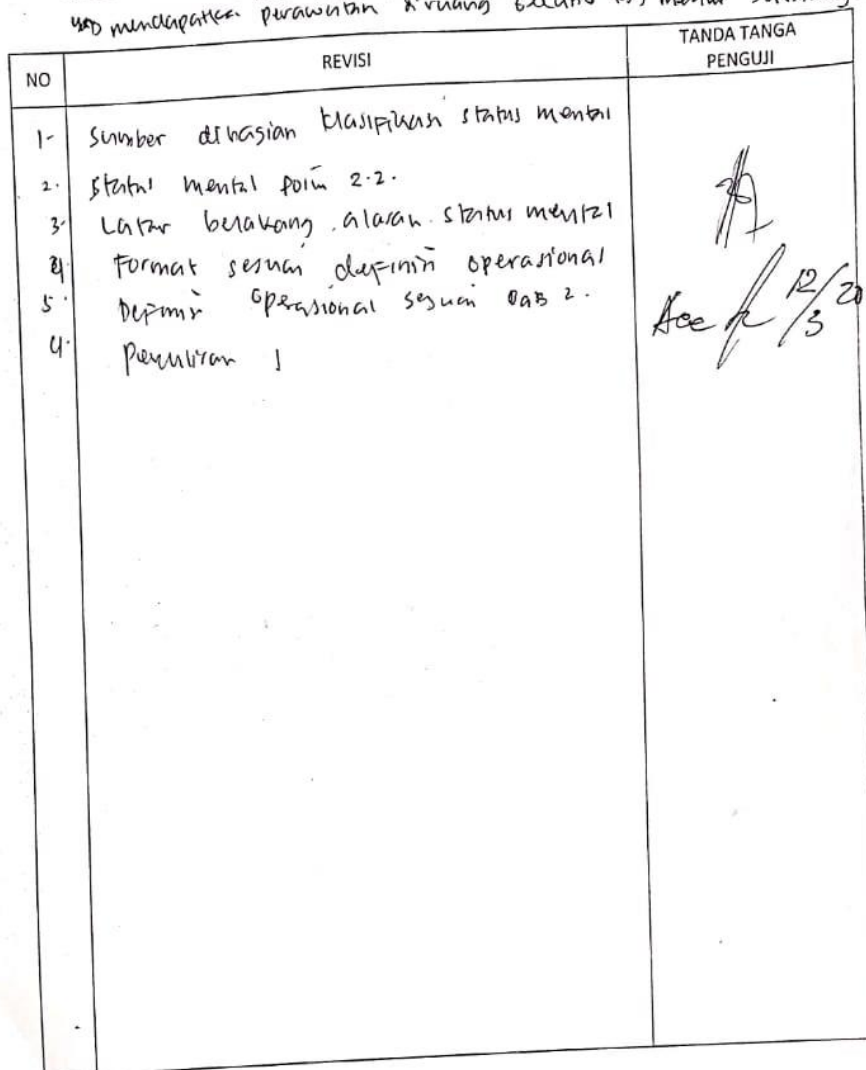 yg mendapatkan perawatan diruang
NO
REVISI
TANDA TANGA
PENGUJI
1- Sumber dibagian klasifikasi status mental
2. Status mental poin 2.2.
3. Latar belakang alasan status mental
4 Format sesuai definisi operasional
5. Definisi Operasional sesuai BAB 2.
4. Penulisan
Acc 12/3 20